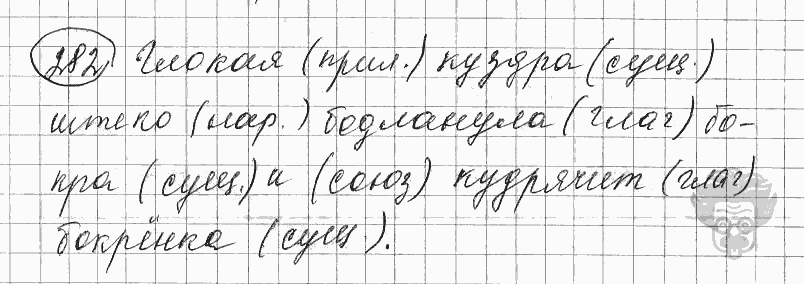 282 Глокая (прил.) куздра (сущ.)
штеко (нар.) бодланула (глаг) бо-
кра (сущ.) и (союз) кудрячит (глаг)
бокрёнка (сущ.).